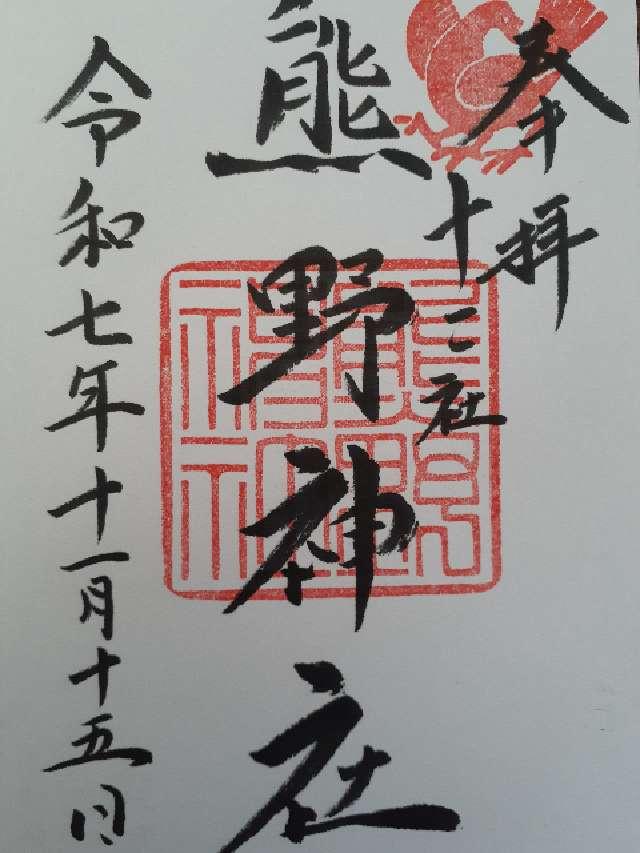 奉拝
十二社
熊野神社
令和七年十一月十五日